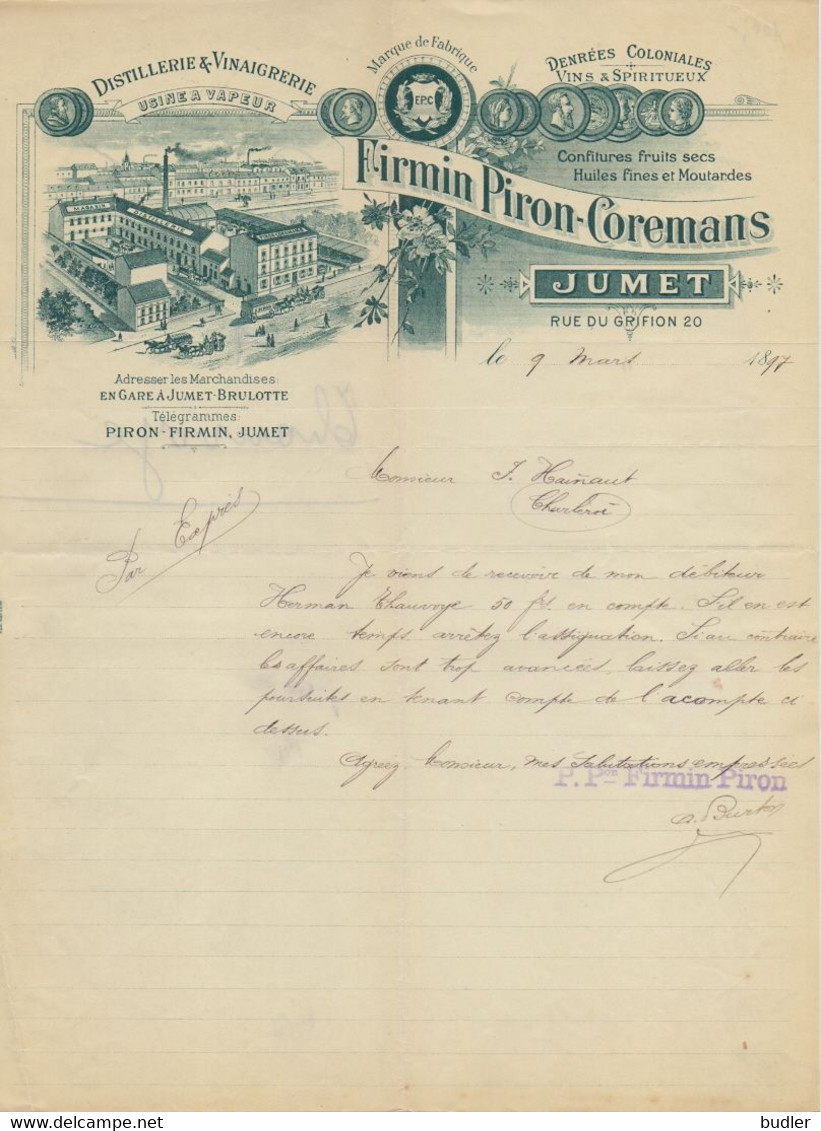 DISTILLERIE & VINAIGRERIE
USINE A VAPEUR
Marque de Fabrique
EPC
DENRÉES COLONIALES
VINS & SPIRITUEUX
Confitures fruits secs
Huiles fines et Moutardes
Firmin Piron-Coremans
DISTILLERIE
JUMET
RUE DU GRIFION 20
le 9 Mars 1897
Adresser les Marchandises:
EN GARE À JUMET-BRULOTTE
Télégrammes:
PIRON-FIRMIN, JUMET
Monsieur J. Hainaut
Charleroi
Par Exprès
Je viens de recevoir de mon débiteur
Herman Thauvoye 50 frs en compte. S'il en est
encore temps arrêtez l'assignation. Si au contraire
les affaires sont trop avancées, laissez aller les
poursuites en tenant compte de l'acompte ci
dessus.
Agréez, Monsieur, mes salutations empressées
P. Pon Firmin Piron
budler